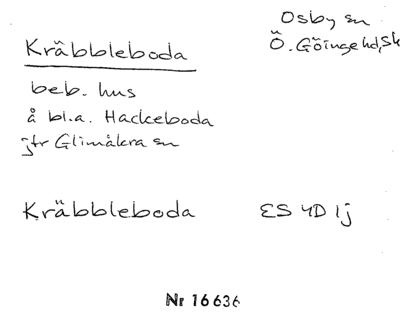 Osby sn
Kräbbleboda
Ö. Göinge hd, Sk
beb. hus
å bl.a. Hackeboda
jfr Glimåkra sn
Kräbbleboda ES 4D 1j
Nr 16636